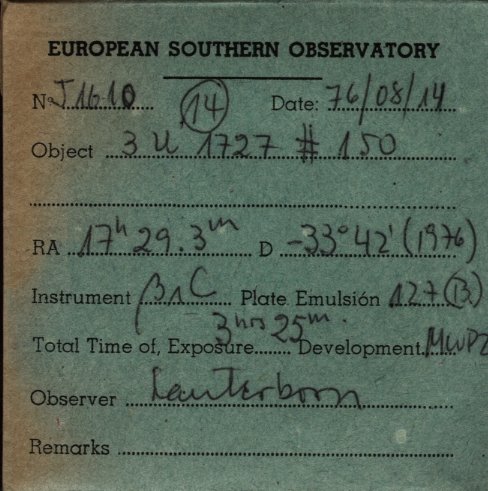 EUROPEAN SOUTHERN OBSERVATORY
No J1610 (14) Date: 76/08/14
Object 3U 1727 # 150
RA 17h 29.3m D -33°42' (1976)
Instrument B&C Plate Emulsión 127 (B)
3hrs 25m.
Total Time of, Exposure Development
Observer Lauterborn
Remarks